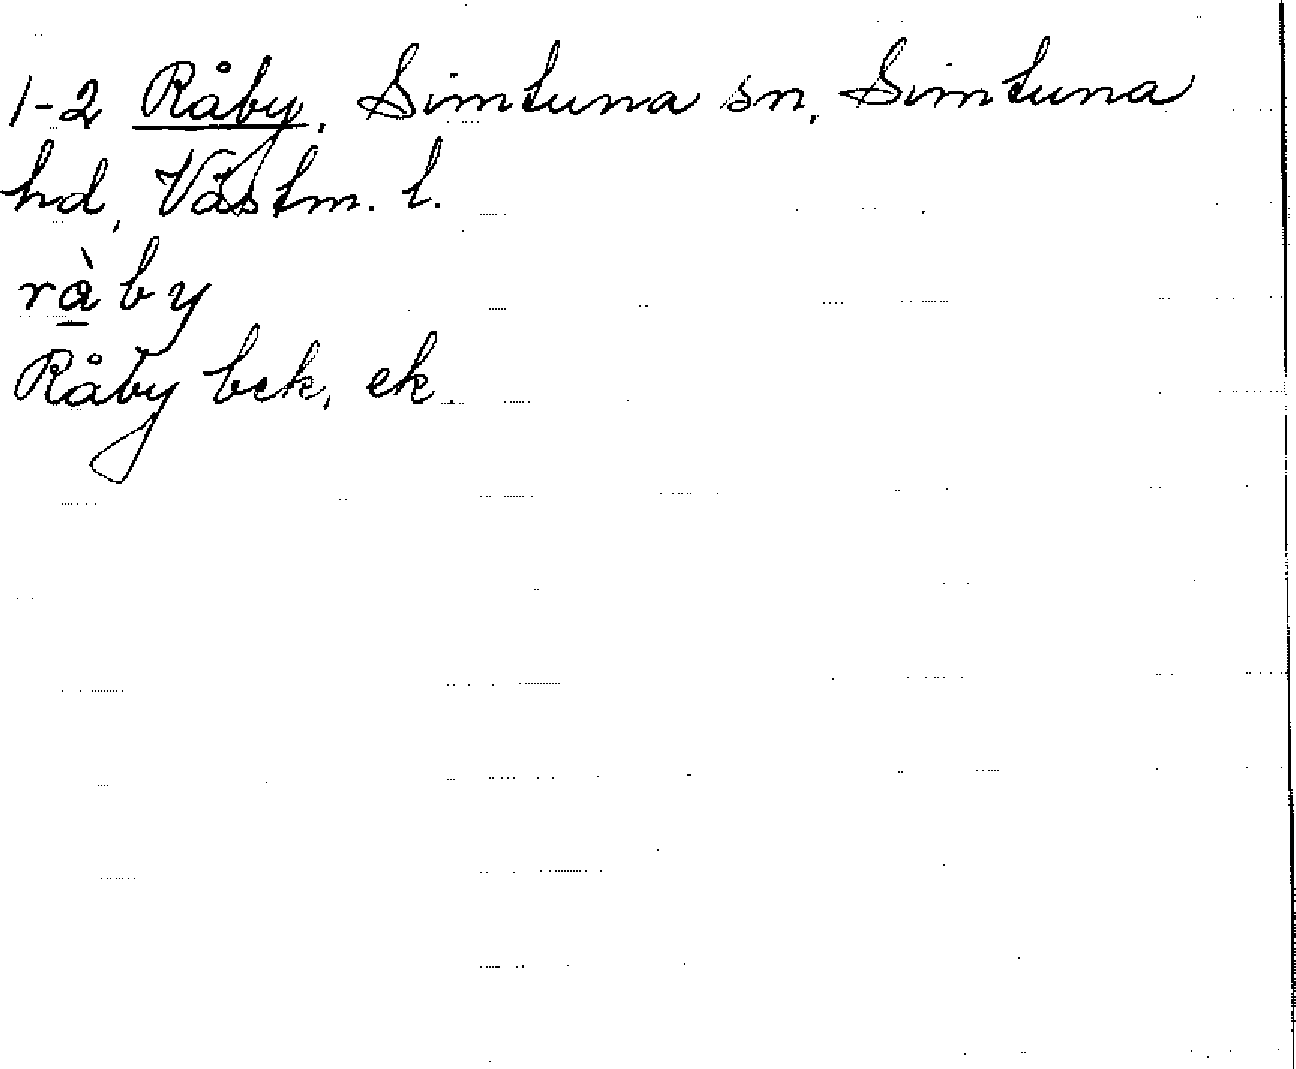 1-2 Råby, Simtuna sn, Simtuna
hd, Västm. l.
rà̱by
Råby bek, ek.